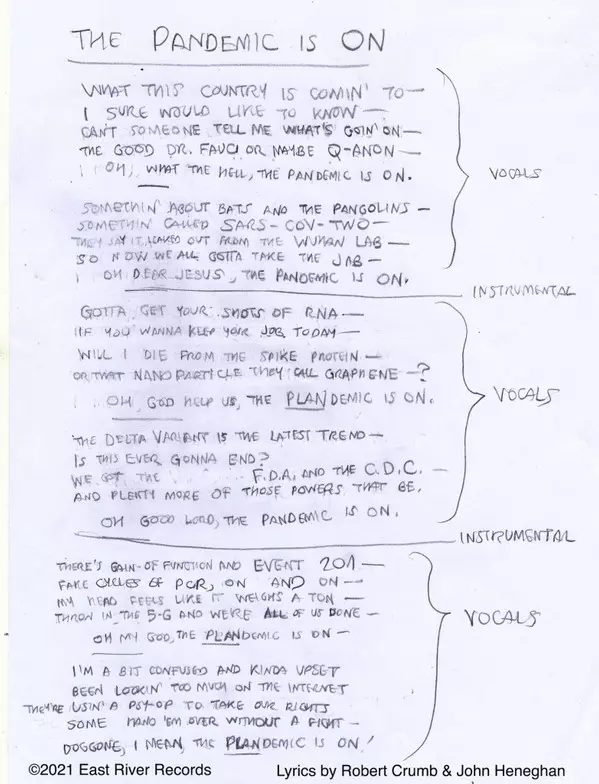 THE PANDEMIC IS ON
WHAT THIS COUNTRY IS COMIN' TO—
I SURE WOULD LIKE TO KNOW—
CAN'T SOMEONE TELL ME WHAT'S GOIN' ON—
THE GOOD DR. FAUCI OR MAYBE Q-ANON—
OH, WHAT THE HELL, THE PANDEMIC IS ON.
VOCALS
SOMETHIN' ABOUT BATS AND THE PANGOLINS—
SOMETHIN' CALLED SARS-COV-TWO—
THEY SAY IT LEAKED OUT FROM THE WUHAN LAB—
SO NOW WE ALL GOTTA TAKE THE JAB—
OH DEAR JESUS, THE PANDEMIC IS ON.
INSTRUMENTAL
GOTTA GET YOUR SHOTS OF RNA—
IF YOU WANNA KEEP YOUR JOB TODAY—
WILL I DIE FROM THE SPIKE PROTEIN—
OR THAT NANOPARTICLE THEY CALL GRAPHENE—?
OH, GOD HELP US, THE PLANDEMIC IS ON.
VOCALS
THE DELTA VARIANT IS THE LATEST TREND—
IS THIS EVER GONNA END?
WE GOT THE F.D.A. AND THE C.D.C.—
AND PLENTY MORE OF THOSE POWERS THAT BE,
OH GOOD LORD, THE PANDEMIC IS ON.
INSTRUMENTAL
THERE'S GAIN-OF FUNCTION AND EVENT 201—
FAKE CYCLES OF PCR, ON AND ON—
MY HEAD FEELS LIKE IT WEIGHS A TON—
THROW IN THE 5-G AND WE'RE ALL OF US DONE—
OH MY GOD, THE PLANDEMIC IS ON—
VOCALS
I'M A BIT CONFUSED AND KINDA UPSET
BEEN LOOKIN' TOO MUCH ON THE INTERNET
THEY'RE USIN' A PSY-OP TO TAKE OUR RIGHTS
SOME HAND 'EM OVER WITHOUT A FIGHT—
DOGGONE, I MEAN, THE PLANDEMIC IS ON!
©2021 East River Records
Lyrics by Robert Crumb & John Heneghan